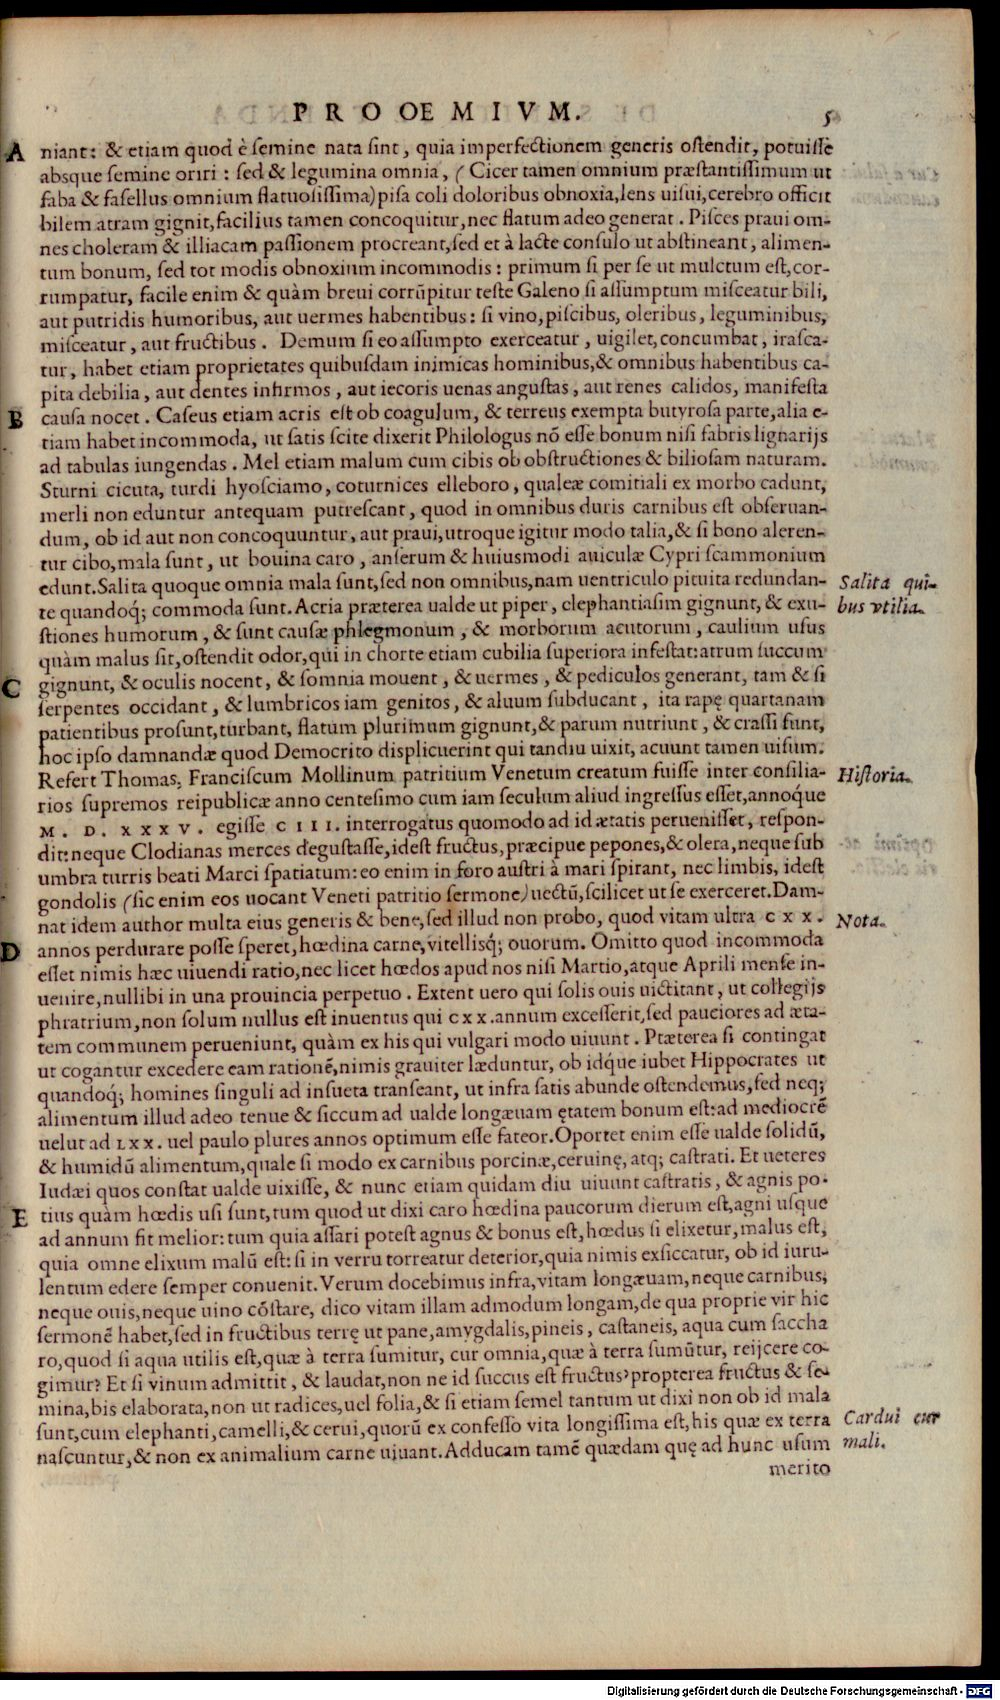 PROOEMIVM. 5
A niant: & etiam quod è semine nata sint, quia imperfectionem generis ostendit, potuisse
absque semine oriri: sed & legumina omnia, (Cicer tamen omnium præstantissimum ut
faba & fasellus omnium flatuosissima) pisa coli doloribus obnoxia, lens uisui, cerebro officit
bilem atram gignit, facilius tamen concoquitur, nec flatum adeo generat. Pisces praui om-
nes choleram & illiacam passionem procreant, sed et à lacte consulo ut abstineant, alimen-
tum bonum, sed tot modis obnoxium incommodis: primum si per se ut mulctum est, cor-
rumpatur, facile enim & quàm breui corrũpitur teste Galeno si assumptum misceatur bili,
aut putridis humoribus, aut uermes habentibus: si vino, piscibus, oleribus, leguminibus,
misceatur, aut fructibus. Demum si eo assumpto exerceatur, uigilet, concumbat, irasca-
tur, habet etiam proprietates quibusdam inimicas hominibus, & omnibus habentibus ca-
pita debilia, aut dentes infirmos, aut iecoris uenas angustas, aut renes calidos, manifesta
B causa nocet. Caseus etiam acris est ob coagulum, & terreus exempta butyrosa parte, alia e-
tiam habet incommoda, ut satis scite dixerit Philologus nõ esse bonum nisi fabris lignarijs
ad tabulas iungendas. Mel etiam malum cum cibis ob obstructiones & biliosam naturam.
Sturni cicuta, turdi hyosciamo, coturnices elleboro, qualeæ comitiali ex morbo cadunt,
merli non eduntur antequam putrescant, quod in omnibus duris carnibus est obseruan-
dum, ob id aut non concoquuntur, aut praui, utroque igitur modo talia, & si bono aleren-
tur cibo, mala sunt, ut bouina caro, anserum & huiusmodi auiculæ Cypri scammonium
edunt. Salita quoque omnia mala sunt, sed non omnibus, nam uentriculo pituita redundan-
Salita qui-
te quandoq́; commoda sunt. Acria præterea ualde ut piper, elephantiasim gignunt, & exu-
bus vtilia.
stiones humorum, & sunt causæ phlegmonum, & morborum acutorum, caulium usus
quàm malus sit, ostendit odor, qui in chorte etiam cubilia superiora infestat: atrum succum
C gignunt, & oculis nocent, & somnia mouent, & uermes, & pediculos generant, tam & si
serpentes occidant, & lumbricos iam genitos, & aluum subducant, ita rapę quartanam
patientibus prosunt, turbant, flatum plurimum gignunt, & parum nutriunt, & crassi sunt,
hoc ipso damnandæ quod Democrito displicuerint qui tandiu uixit, acuunt tamen uisum.
Refert Thomas, Franciscum Mollinum patritium Venetum creatum fuisse inter consilia-
Historia.
rios supremos reipublicæ anno centesimo cum iam seculum aliud ingressus esset, annoq́ue
M. D. XXXV. egisse CIII. interrogatus quomodo ad id ætatis peruenisset, respon-
dit: neque Clodianas merces degustasse, idest fructus, præcipue pepones, & olera, neque sub
umbra turris beati Marci spatiatum: eo enim in foro austri à mari spirant, nec limbis, idest
gondolis (sic enim eos uocant Veneti patritio sermone) uectũ, scilicet ut se exerceret. Dam-
nat idem author multa eius generis & bene, sed illud non probo, quod vitam ultra CXX.
Nota.
D annos perdurare posse speret, hœdina carne, vitellisq́; ouorum. Omitto quod incommoda
esset nimis hæc uiuendi ratio, nec licet hœdos apud nos nisi Martio, atque Aprili mense in-
uenire, nullibi in una prouincia perpetuo. Extent uero qui solis ouis uictitant, ut collegijs
phratrium, non solum nullus est inuentus qui CXX. annum excesserit, sed pauciores ad æta-
tem communem perueniunt, quàm ex his qui vulgari modo uiuunt. Præterea si contingat
ut cogantur excedere eam rationẽ, nimis grauiter læduntur, ob idq́ue iubet Hippocrates ut
quandoq́; homines singuli ad insueta transeant, ut infra satis abunde ostendemus, sed neq;
alimentum illud adeo tenue & siccum ad ualde longæuam ętatem bonum est: ad mediocrẽ
uelut ad LXX. uel paulo plures annos optimum esse fateor. Oportet enim esse ualde solidũ,
& humidũ alimentum, quale si modo ex carnibus porcinæ, ceruinę, atq; castrati. Et ueteres
Iudæi quos constat ualde uixisse, & nunc etiam quidam diu uiuunt castratis, & agnis po-
E tius quàm hœdis usi sunt, tum quod ut dixi caro hœdina paucorum dierum est, agni usque
ad annum fit melior: tum quia assari potest agnus & bonus est, hœdus si elixetur, malus est,
quia omne elixum malũ est: si in verru torreatur deterior, quia nimis exsiccatur, ob id iuru-
lentum edere semper conuenit. Verum docebimus infra, vitam longæuam, neque carnibus,
neque ouis, neque uino cõstare, dico vitam illam admodum longam, de qua proprie vir hic
sermonẽ habet, sed in fructibus terrę ut pane, amygdalis, pineis, castaneis, aqua cum saccha
ro, quod si aqua utilis est, quæ à terra sumitur, cur omnia, quæ à terra sumũtur, reijcere co-
gimur? Et si vinum admittit, & laudat, non ne id succus est fructus? propterea fructus & se-
mina, bis elaborata, non ut radices, uel folia, & si etiam semel tantum ut dixi non ob id mala
sunt, cum elephanti, camelli, & cerui, quorũ ex confesso vita longissima est, his quæ ex terra
Cardui cur
nascuntur, & non ex animalium carne uiuant. Adducam tamẽ quædam quę ad hunc usum
mali.
merito
Digitalisierung gefördert durch die Deutsche Forschungsgemeinschaft - DFG